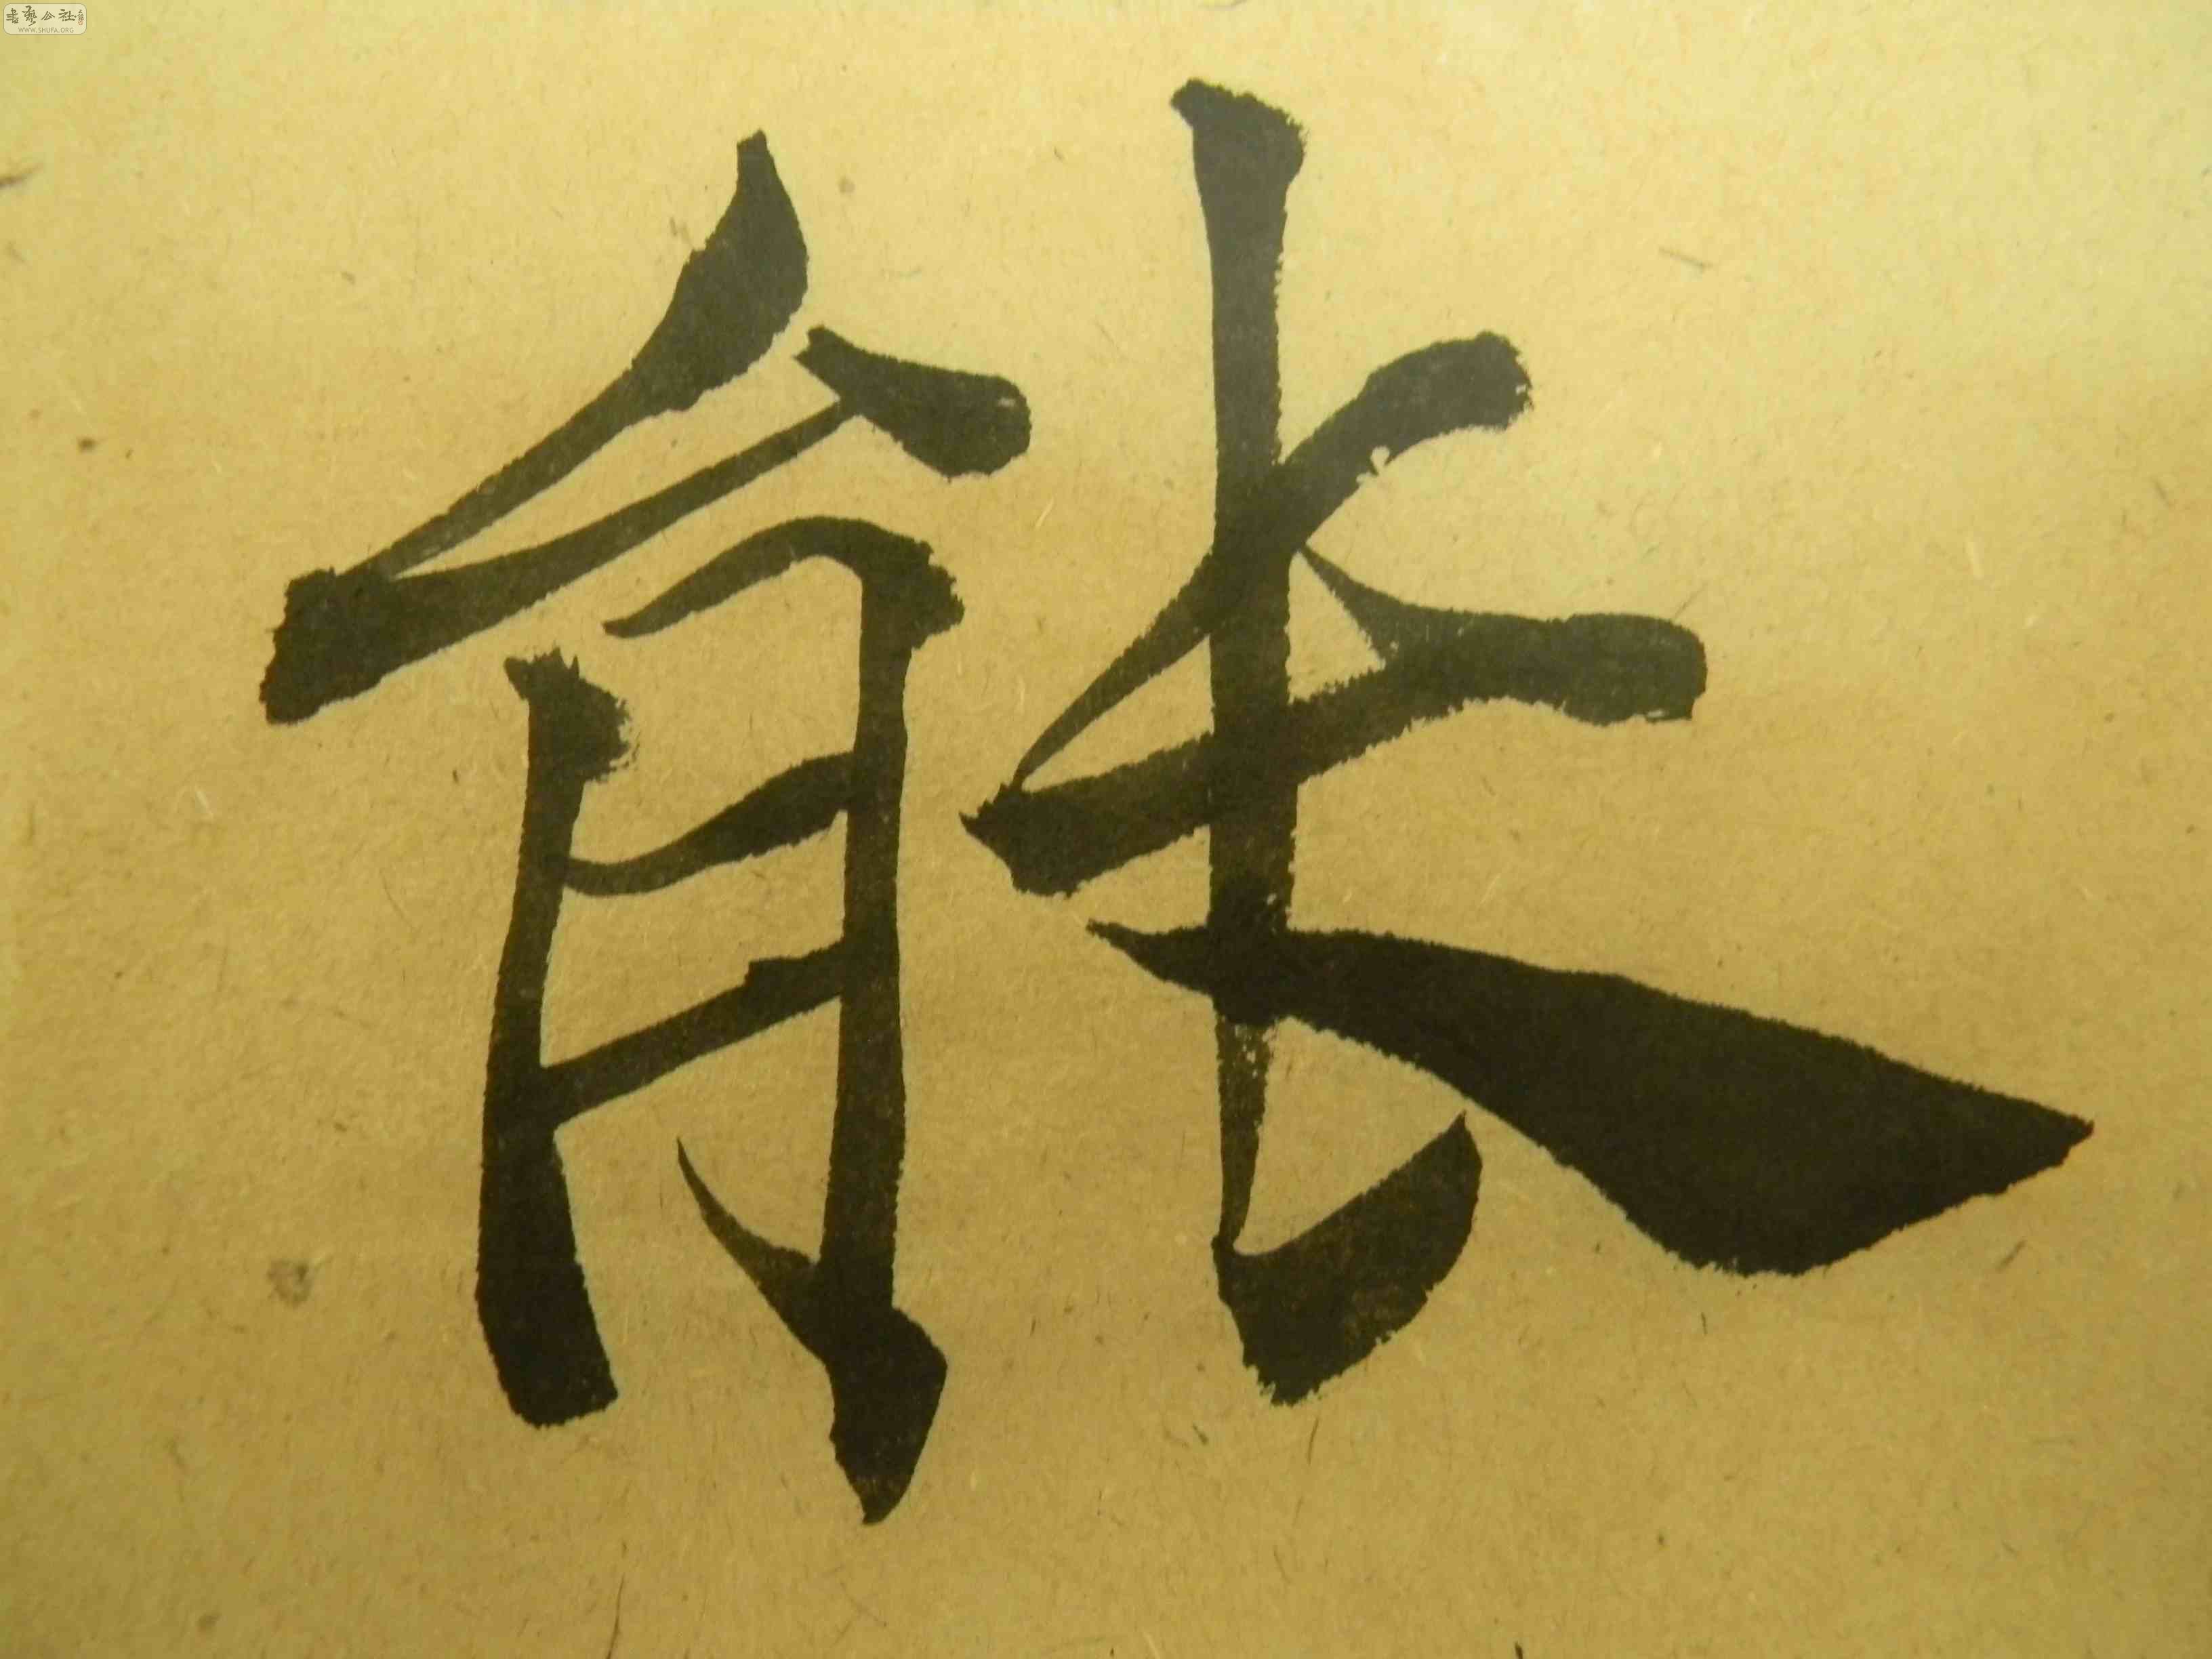 書藝公社
WWW.SHUFA.ORG
能